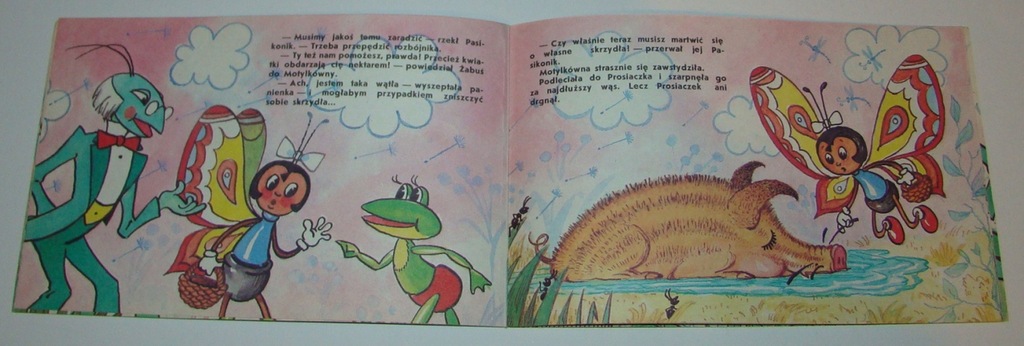 — Musimy jakoś temu zaradzić — rzekł Pasi-
konik. — Trzeba przepędzić rozbójnika.
— Ty też nam pomożesz, prawda! Przecież kwia-
tki obdarzają cię nektarem! — powiedział Żabuś
do Motylkówny.
— Ach, jestem taka wątła — wyszeptała pa-
nienka — mogłabym przypadkiem zniszczyć
sobie skrzydła...
— Czy właśnie teraz musisz martwić się
o własne skrzydła! — przerwał jej Pa-
sikonik.
Motylkówna strasznie się zawstydziła.
Podleciała do Prosiaczka i szarpnęła go
za najdłuższy wąs. Lecz Prosiaczek ani
drgnął.